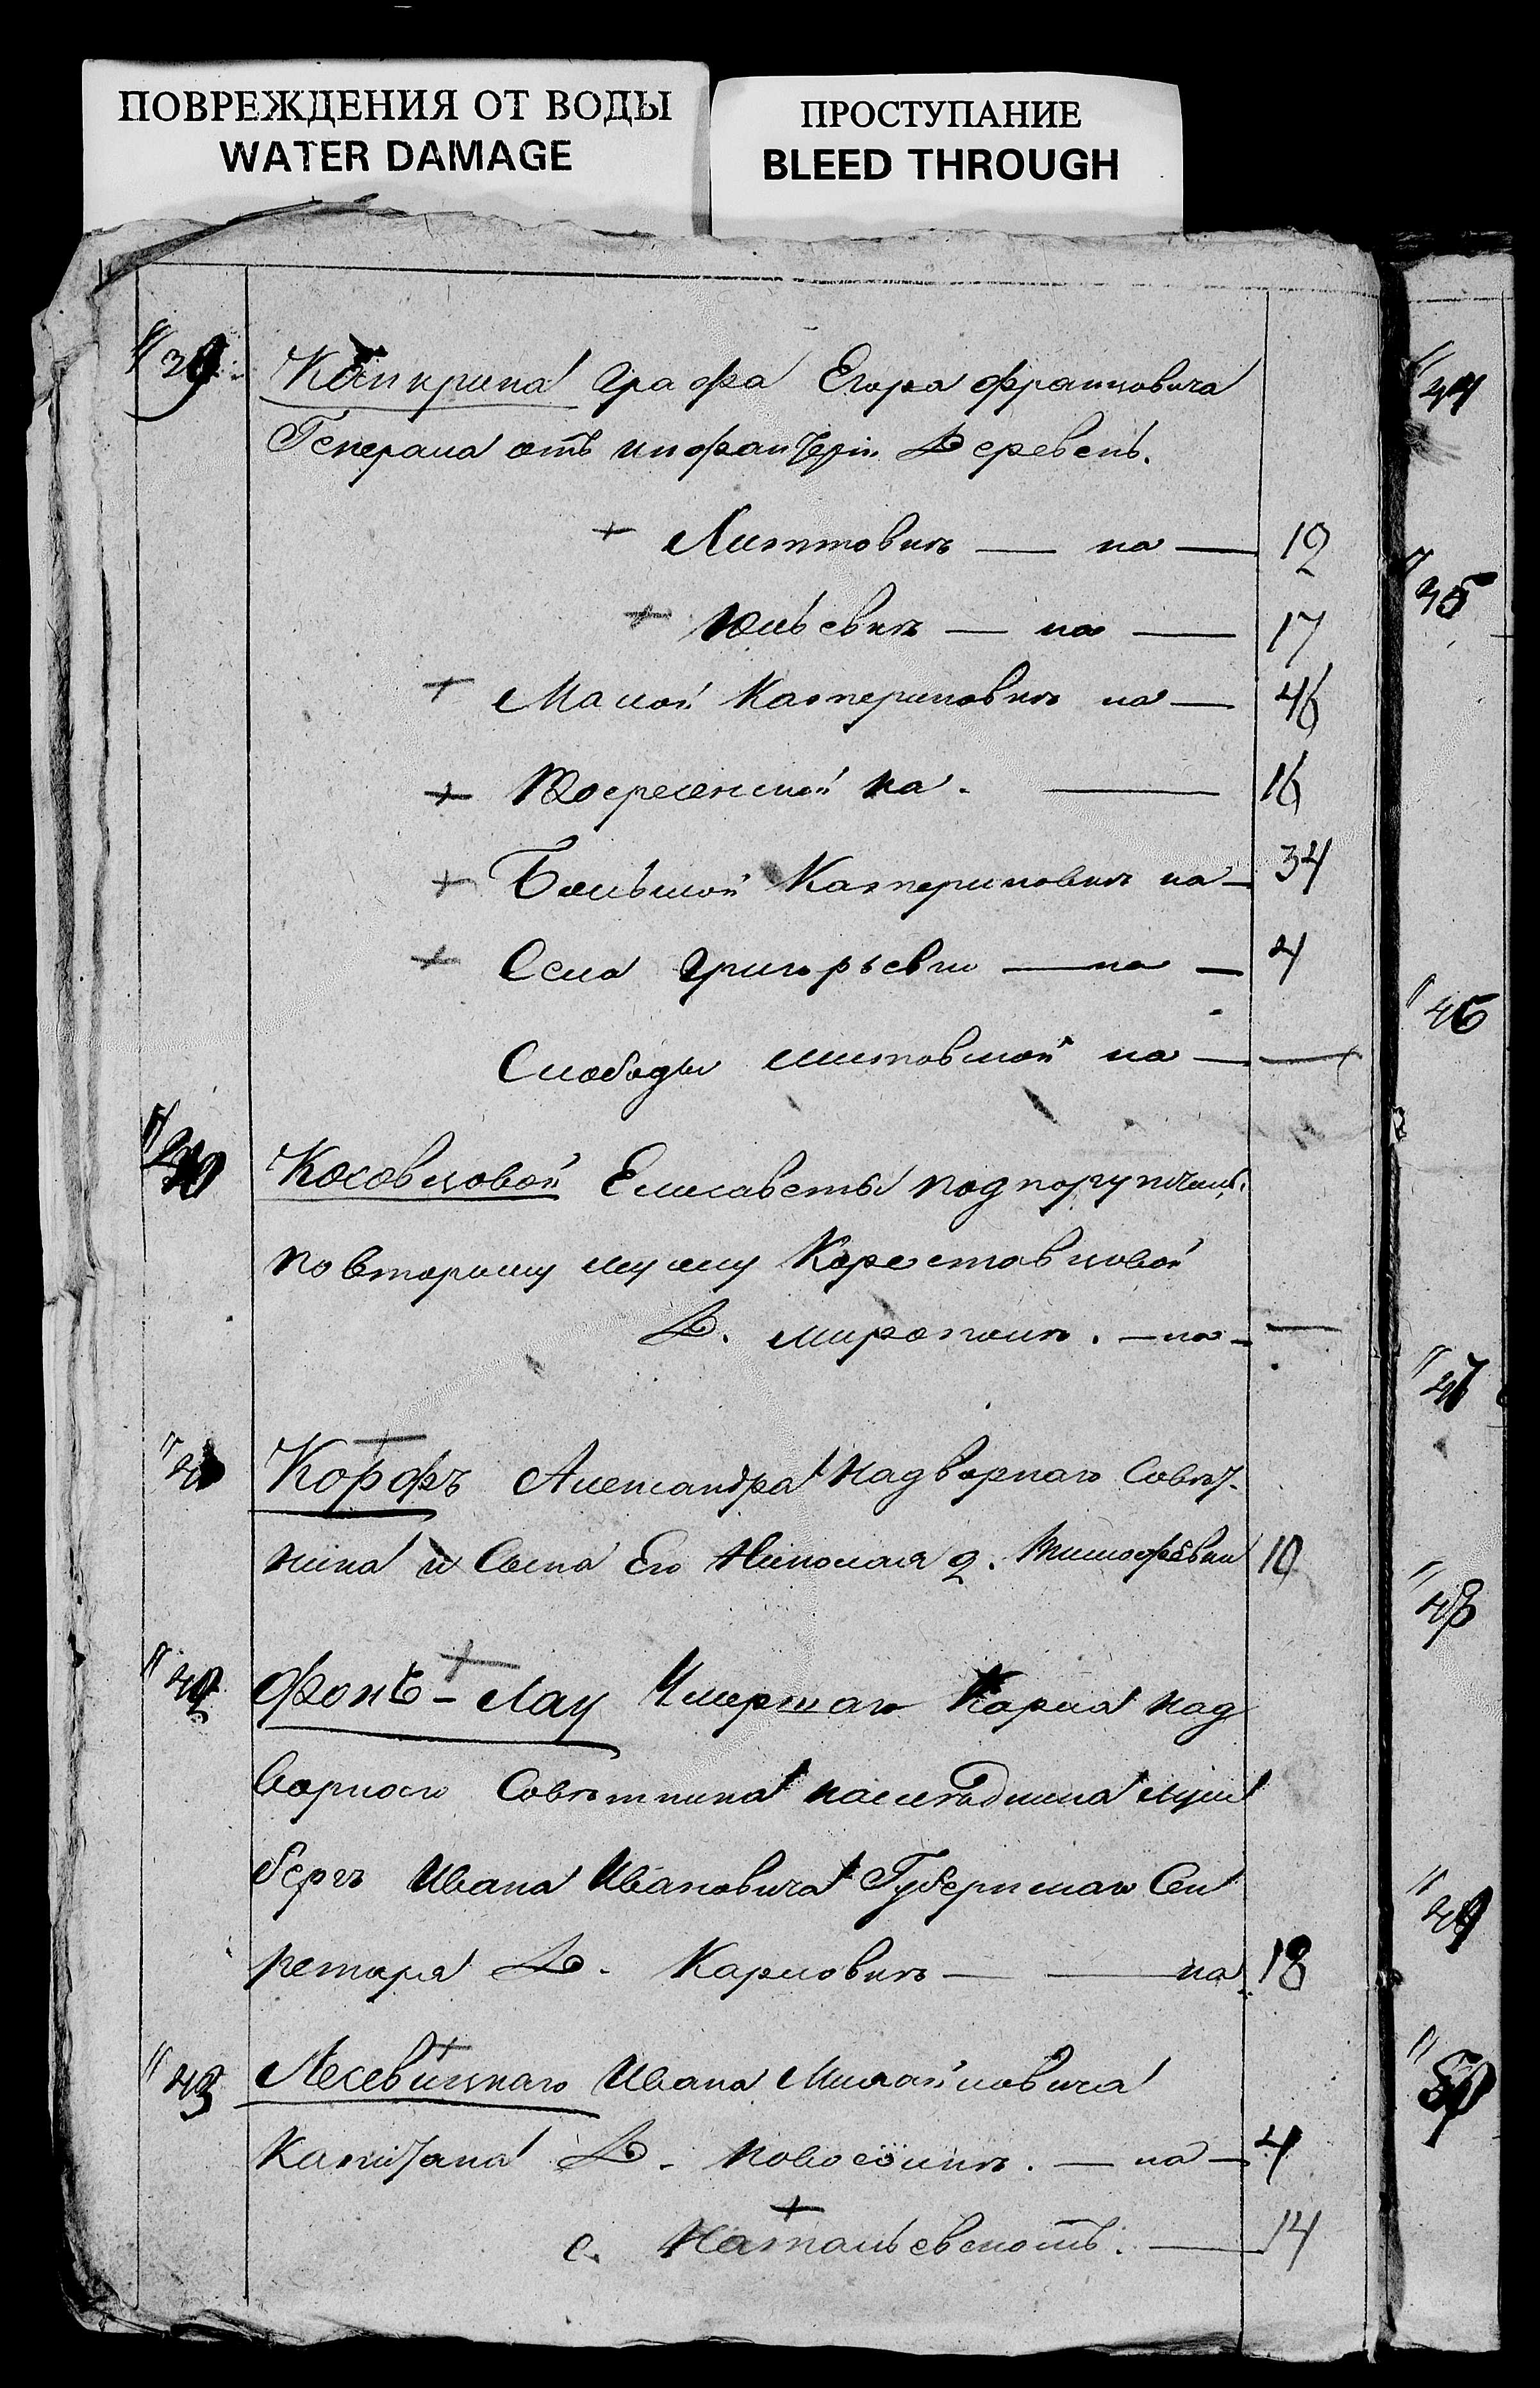 ПОВРЕЖДЕНИЯ ОТ ВОДЫ
WATER DAMAGE
ПРОСТУПАНИЕ
BLEED THROUGH
39 Канкрина Графа Егора Францовича
Генерала отъ инфантеріи Деревень.
+ Литтовки — на — 12
+ Юльевки — на — 17
+ Малой Катериновки на — 46
+ Воскресенской на. — 16
+ Большой Катериновки на — 34
+ Села Григорьевки — на — 4
Слободы Митовской на — —
40 Коховцовой Елисаветы подпоручиц.
по второму мужу
Д. — на — —
Корфъ Александра Надворнаго Совѣт.
ника и Сына Его Николая д. Тимофѣевки 10
42 Фонъ-Лау Умершаго Карла Над
ворнаго Совѣтника наслѣдника
бергъ Ивана Ивановича Губернскаго Сек
ретаря Д. Карловки — на 18
43 Лесевицкаго Ивана Михайловича
Капитана Д. Новосіолки. — на — 4
с. — 14
44
45
46
47
48
49
50